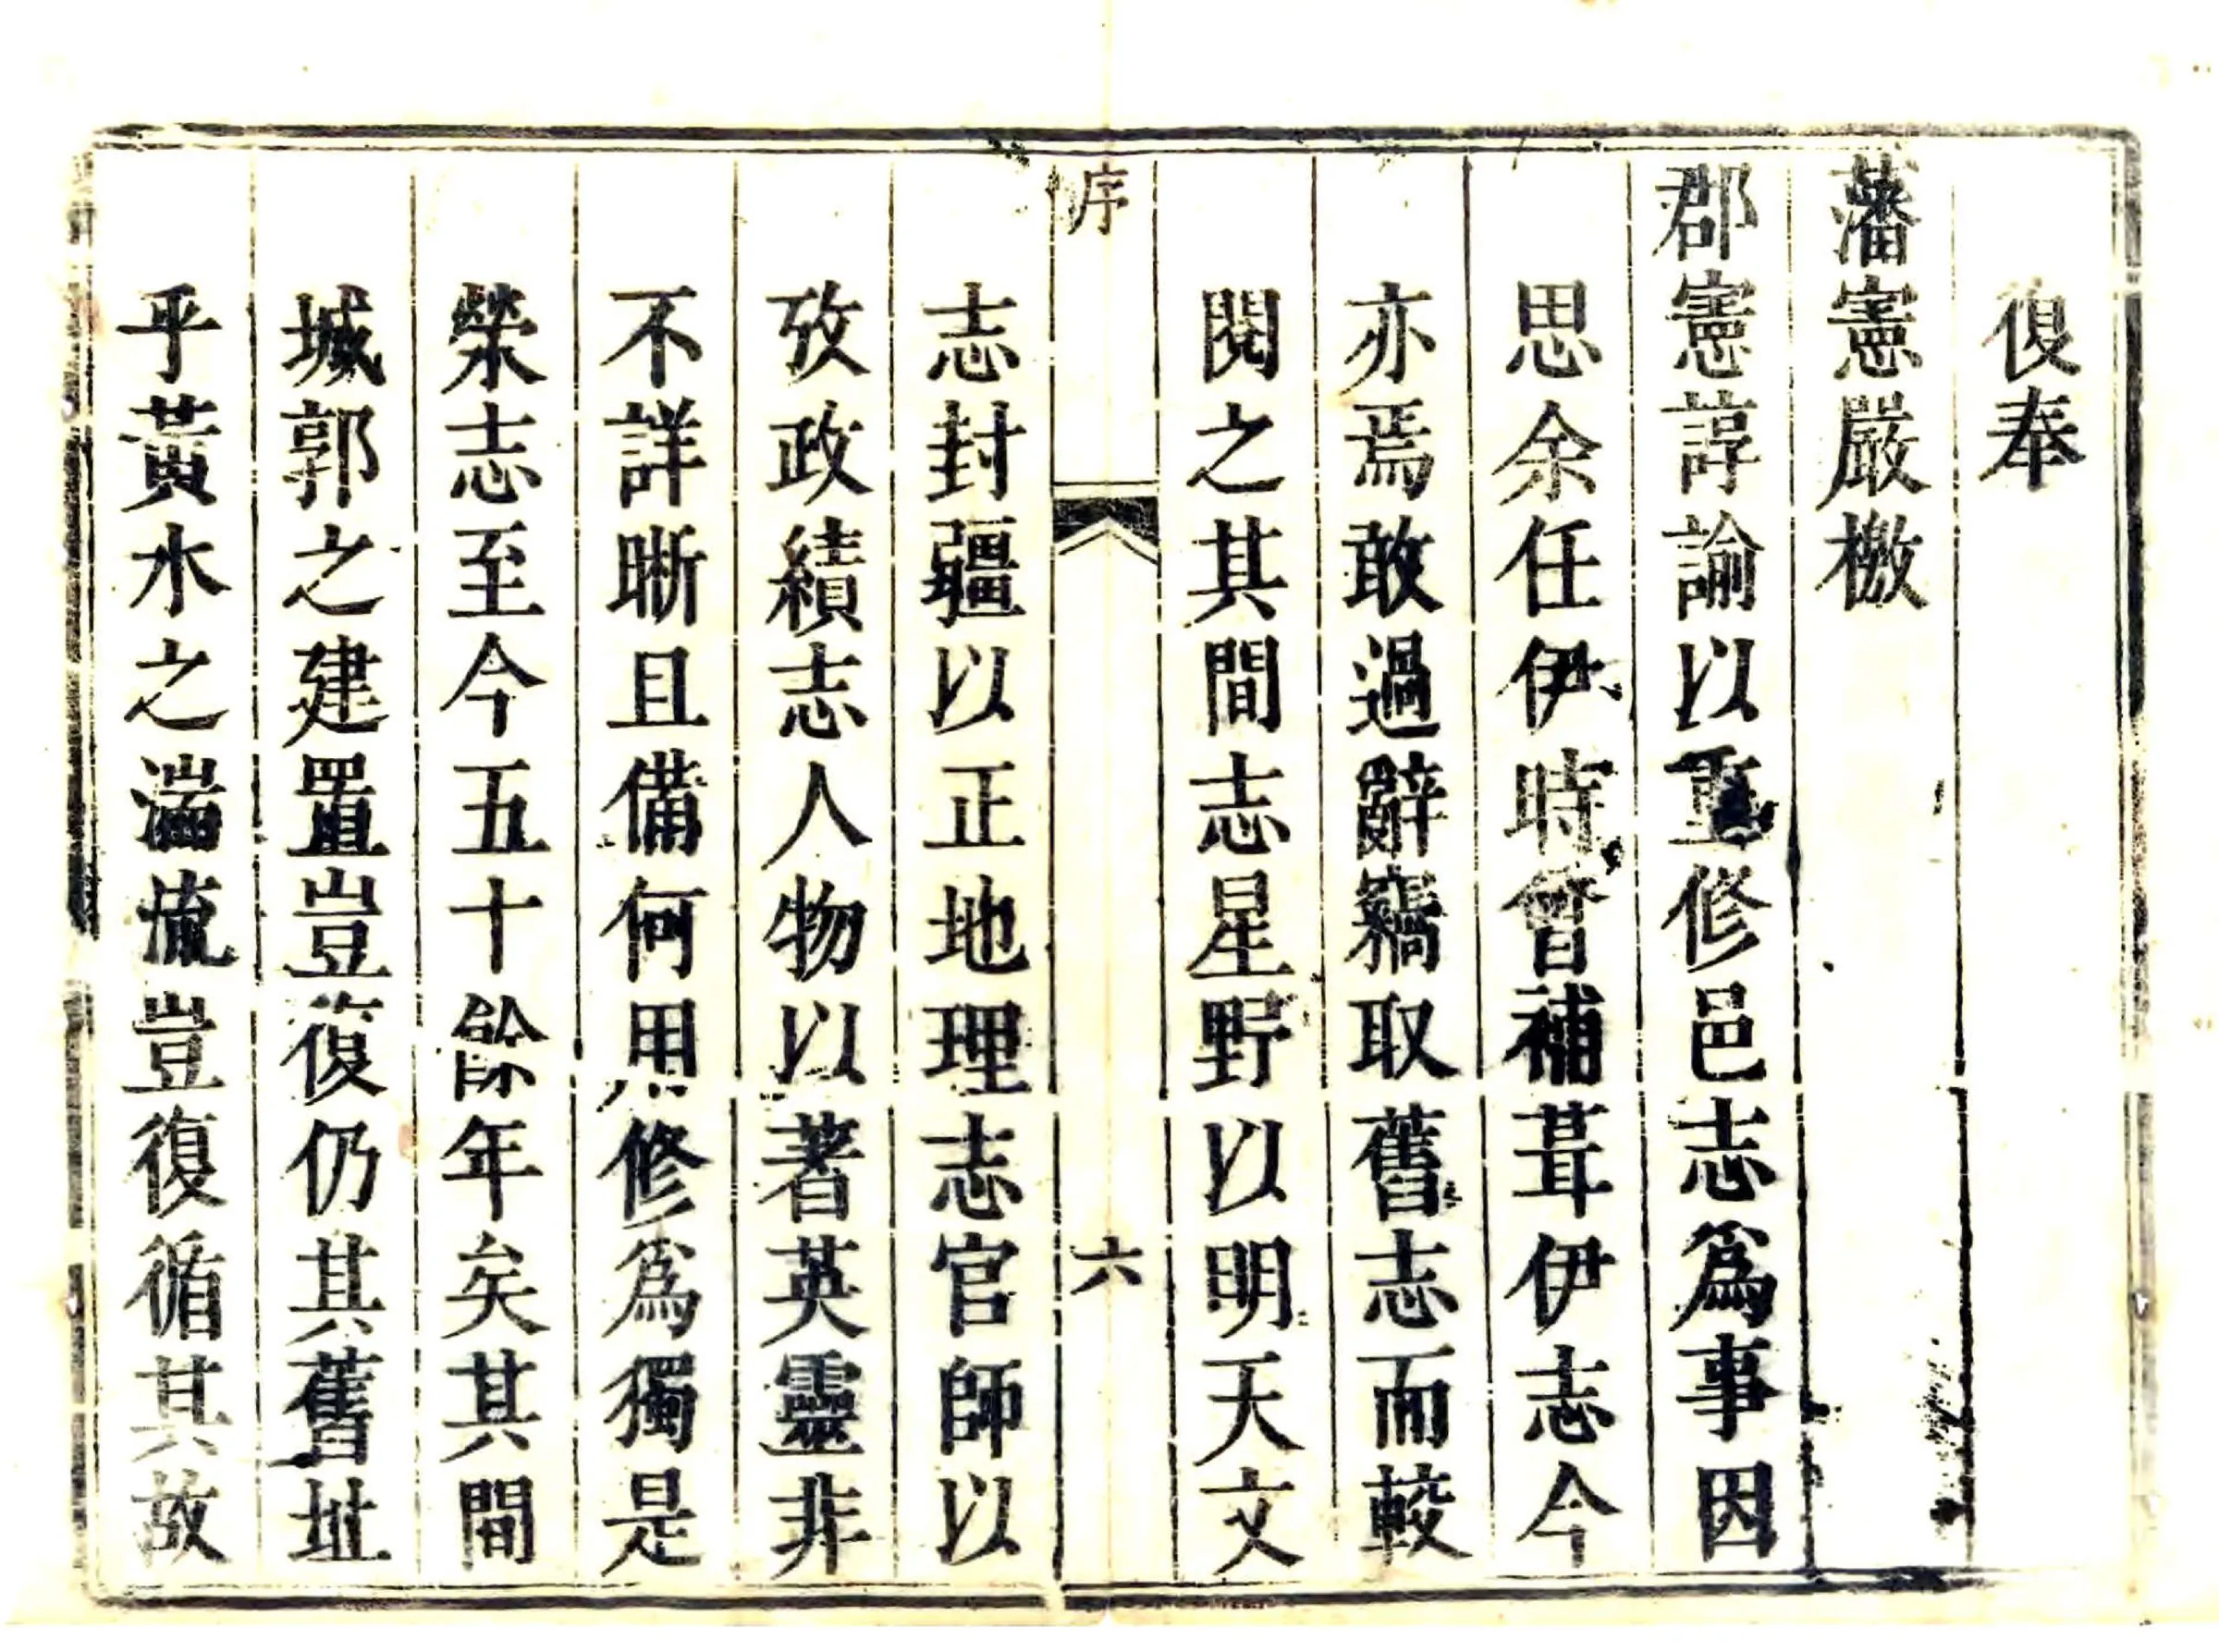 復奉
藩憲嚴檄
郡憲諄諭以重修邑志爲事因
思余任伊時曾補葺伊志今
亦焉敢過辭竊取舊志而較
閱之其間志星野以明天文
序
六
志封疆以正地理志官師以
攷政績志人物以著英靈非
不詳晰且備何用修爲獨是
榮志至今五十餘年矣其間
城郭之建置豈復仍其舊址
乎黃水之湍流豈復循其故